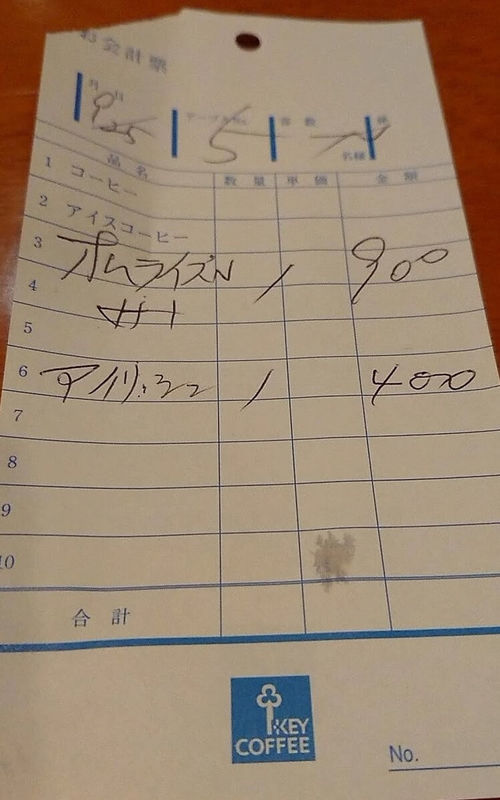 お会計票
月 日 テーブルNo. 客数 係
9 25 5 名様
品名 数量 単価 金額
1 コーヒー
2 アイスコーヒー
3 オムライス 1 900
4
5
6 1 400
7
8
9
10
合計
KEY
COFFEE
No.